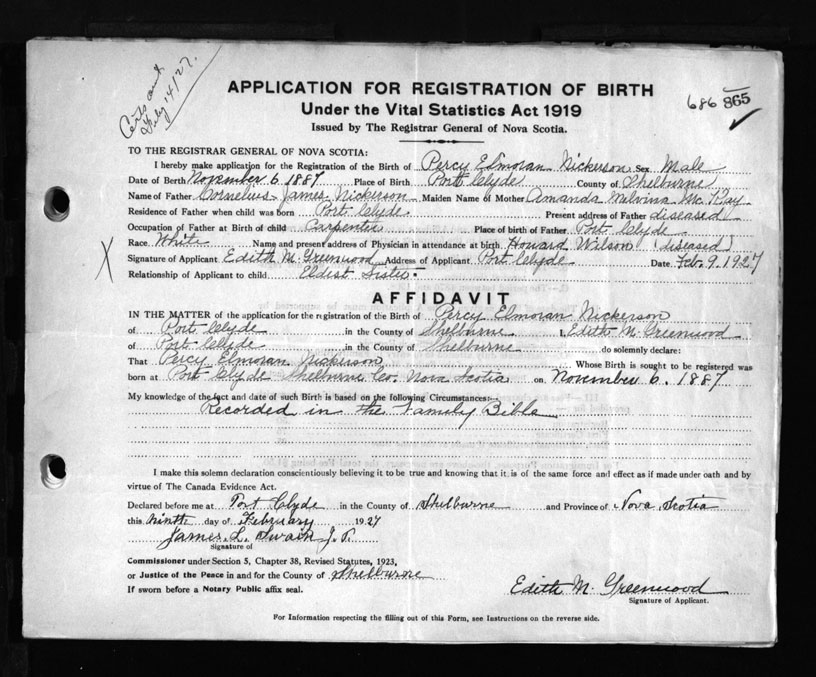 Certs out
Feby 14/27.
APPLICATION FOR REGISTRATION OF BIRTH
686 865
Under the Vital Statistics Act 1919
Issued by The Registrar General of Nova Scotia.
TO THE REGISTRAR GENERAL OF NOVA SCOTIA:
I hereby make application for the Registration of the Birth of Percy Elmoran Nickerson Sex Male
Date of Birth November 6 1887 Place of Birth Port Clyde County of Shelburne
Name of Father Cornelius James Nickerson Maiden Name of Mother Amanda Melvina McKay
Residence of Father when child was born Port Clyde Present address of Father diseased
Occupation of Father at Birth of child Carpenter Place of birth of Father Port Clyde
Race White Name and present address of Physician in attendance at birth Howard Wilson (diseased)
X Signature of Applicant Edith M. Greenwood Address of Applicant Port Clyde Date Feb. 9. 1927
Relationship of Applicant to child Eldest Sister
AFFIDAVIT
IN THE MATTER of the application for the registration of the Birth of Percy Elmoran Nickerson
of Port Clyde in the County of Shelburne, Edith M. Greenwood
of Port Clyde in the County of Shelburne do solemnly declare:
That Percy Elmoran Nickerson Whose Birth is sought to be registered was
born at Port Clyde Shelburne Co, Nova Scotia on November 6. 1887
My knowledge of the fact and date of such Birth is based on the following Circumstances:
Recorded in the Family Bible
I make this solemn declaration conscientiously believing it to be true and knowing that it is of the same force and effect as if made under oath and by
virtue of The Canada Evidence Act.
Declared before me at Port Clyde in the County of Shelburne and Province of Nova Scotia
this ninth day of February 1927
James L. Swain J.P.
Signature of
Commissioner under Section 5, Chapter 38, Revised Statutes, 1923,
or Justice of the Peace in and for the County of Shelburne
If sworn before a Notary Public affix seal.
Edith M. Greenwood
Signature of Applicant.
For Information respecting the filling out of this Form, see Instructions on the reverse side.